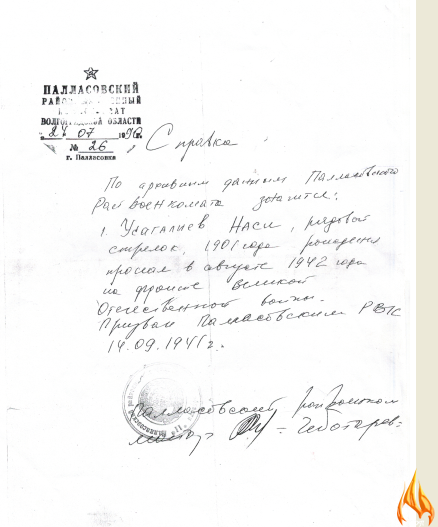 ПАЛЛАСОВСКИЙ
ВОЛГОГРАДСКОЙ ОБЛАСТИ
"24" 07 1990г.
№ 26
г. Палласовка
Справка
По архивным данным Палласовского
Райвоенкомата значится:
1. Утагалиев Наси, рядовой
стрелок, 1901 года рождения
пропал в августе 1942 года
на фронте Великой
Отечественной войны.
Призван Палласовским РВК
14.09.1941г.
Палласовский райвоенком